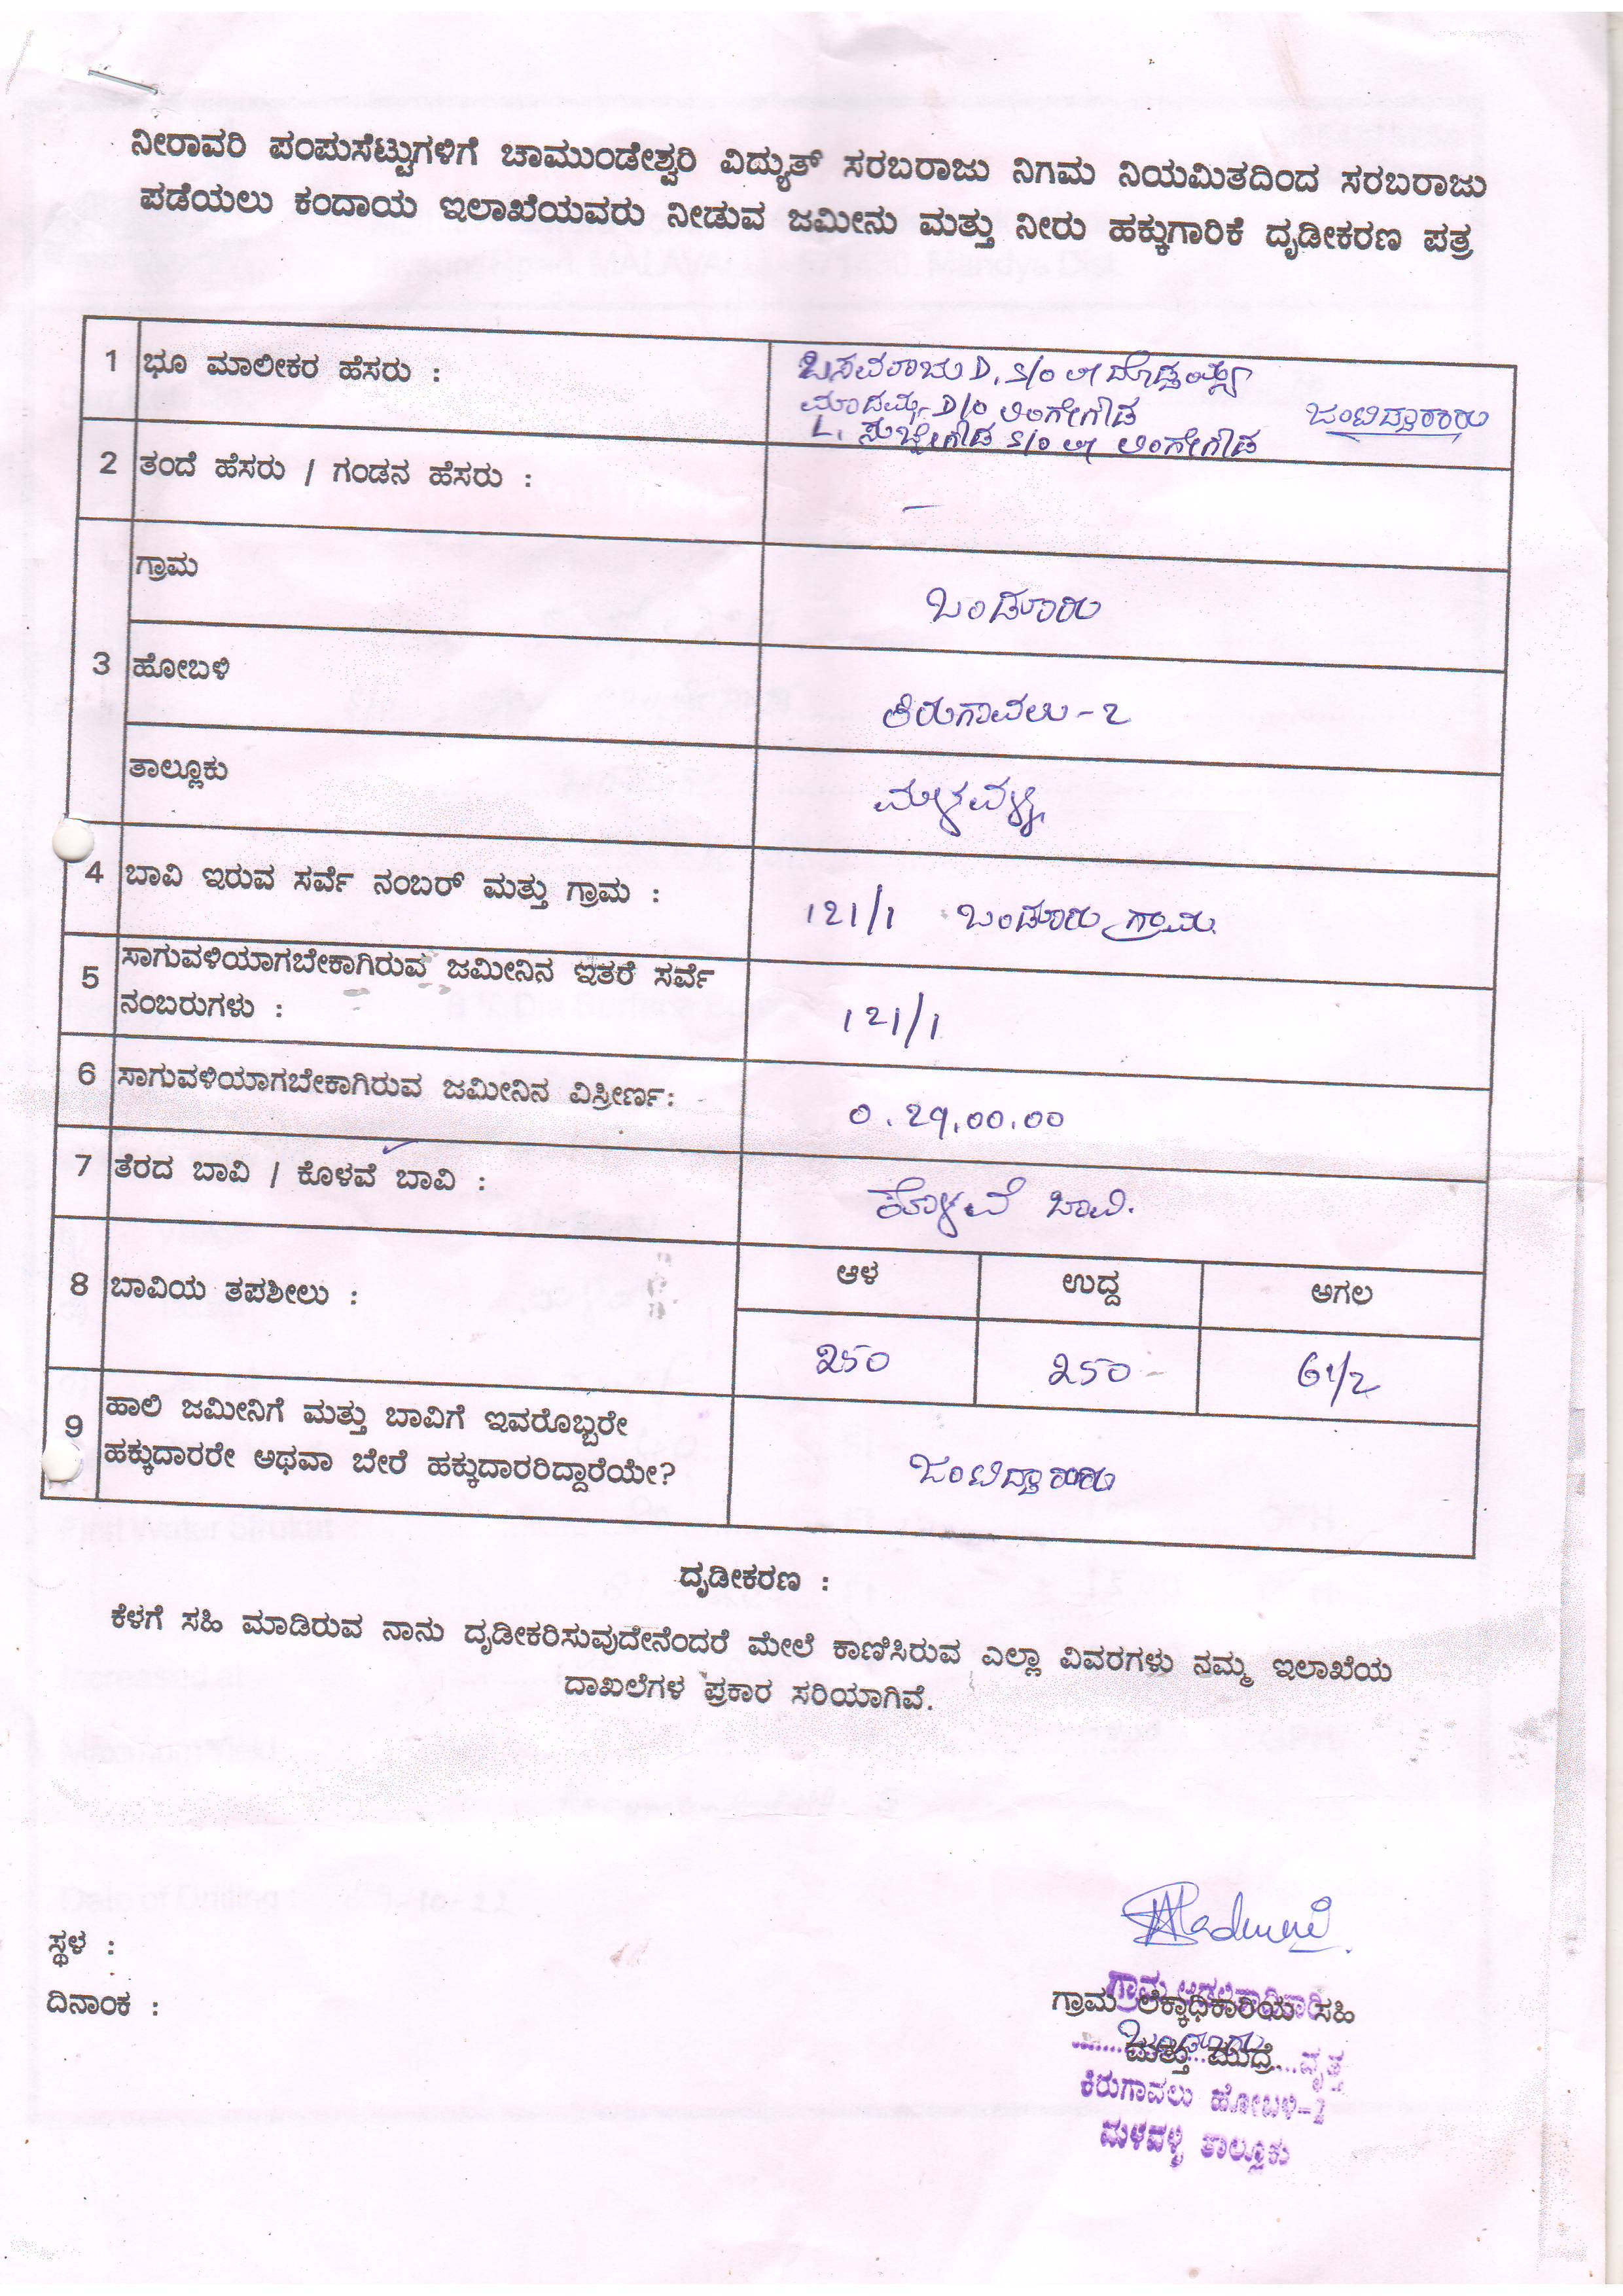 ನೀರಾವರಿ ಪಂಪುಸೆಟ್ಟುಗಳಿಗೆ ಚಾಮುಂಡೇಶ್ವರಿ ವಿದ್ಯುತ್ ಸರಬರಾಜು ನಿಗಮ ನಿಯಮಿತದಿಂದ ಸರಬರಾಜು
ಪಡೆಯಲು ಕಂದಾಯ ಇಲಾಖೆಯವರು ನೀಡುವ ಜಮೀನು ಮತ್ತು ನೀರು ಹಕ್ಕುಗಾರಿಕೆ ದೃಡೀಕರಣ ಪತ್ರ
1 ಭೂ ಮಾಲೀಕರ ಹೆಸರು :
ಬಸವರಾಜು D, S/o ಲೇ ದೊಡ್ಡಯ್ಯ
ಮಾದಮ್ಮ D/o ಲಿಂಗೇಗೌಡ ಜಂಟಿದ್ದಾರರು
L. ಸುಬ್ಬೇಗೌಡ S/o ಲೇ ಲಿಂಗೇಗೌಡ
2 ತಂದೆ ಹೆಸರು / ಗಂಡನ ಹೆಸರು : –
3 ಗ್ರಾಮ ಬಂಡೂರು
ಹೋಬಳಿ ಕಿರುಗಾವಲು - 2
ತಾಲ್ಲೂಕು ಮಳವಳ್ಳಿ
4 ಬಾವಿ ಇರುವ ಸರ್ವೆ ನಂಬರ್ ಮತ್ತು ಗ್ರಾಮ : 121/1 ಬಂಡೂರು ಗ್ರಾಮ
5 ಸಾಗುವಳಿಯಾಗಬೇಕಾಗಿರುವ ಜಮೀನಿನ ಇತರೆ ಸರ್ವೆ
ನಂಬರುಗಳು : 121/1
6 ಸಾಗುವಳಿಯಾಗಬೇಕಾಗಿರುವ ಜಮೀನಿನ ವಿಸ್ತೀರ್ಣ: 0.29.00.00
7 ತೆರದ ಬಾವಿ / ಕೊಳವೆ ಬಾವಿ : ಕೊಳವೆ ಬಾವಿ.
8 ಬಾವಿಯ ತಪಶೀಲು : ಆಳ ಉದ್ದ ಅಗಲ
250 250 6 1/2
9 ಹಾಲಿ ಜಮೀನಿಗೆ ಮತ್ತು ಬಾವಿಗೆ ಇವರೊಬ್ಬರೇ
ಹಕ್ಕುದಾರರೇ ಅಥವಾ ಬೇರೆ ಹಕ್ಕುದಾರರಿದ್ದಾರೆಯೇ? ಜಂಟಿದ್ದಾರರು
ದೃಡೀಕರಣ :
ಕೆಳಗೆ ಸಹಿ ಮಾಡಿರುವ ನಾನು ದೃಡೀಕರಿಸುವುದೇನೆಂದರೆ ಮೇಲೆ ಕಾಣಿಸಿರುವ ಎಲ್ಲಾ ವಿವರಗಳು ನಮ್ಮ ಇಲಾಖೆಯ
ದಾಖಲೆಗಳ ಪ್ರಕಾರ ಸರಿಯಾಗಿವೆ.
ಸ್ಥಳ :
ದಿನಾಂಕ :
ಗ್ರಾಮ ಲೆಕ್ಕಾಧಿಕಾರಿಯ ಸಹಿ
ಮತ್ತು ಮುದ್ರೆ
ಬಂಡೂರು ವೃತ್ತ
ಕಿರುಗಾವಲು ಹೋಬಳಿ-2
ಮಳವಳ್ಳಿ ತಾಲ್ಲೂಕು